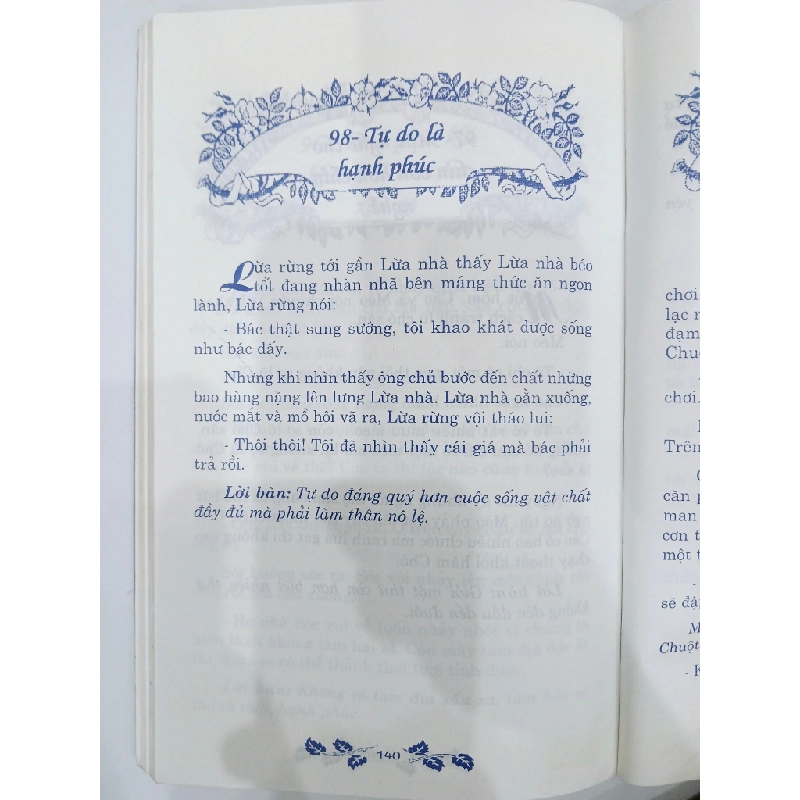 98- Tự do là
hạnh phúc
Lừa rừng tới gần Lừa nhà thấy Lừa nhà béo
tốt đang nhàn nhã bên máng thức ăn ngon
lành, Lừa rừng nói:
- Bác thật sung sướng, tôi khao khát được sống
như bác đấy.
Nhưng khi nhìn thấy ông chủ bước đến chất những
bao hàng nặng lên lưng Lừa nhà. Lừa nhà oằn xuống,
nước mắt và mồ hôi vã ra, Lừa rừng vội tháo lui:
- Thôi thôi! Tôi đã nhìn thấy cái giá mà bác phải
trả rồi.
Lời bàn: Tự do đáng quý hơn cuộc sống vật chất
đầy đủ mà phải làm thân nô lệ.
140
chơi
lạc
đam
Chuột
chơi.
Trên
cản
man
cơn
một
-
sẽ đập
Chuột